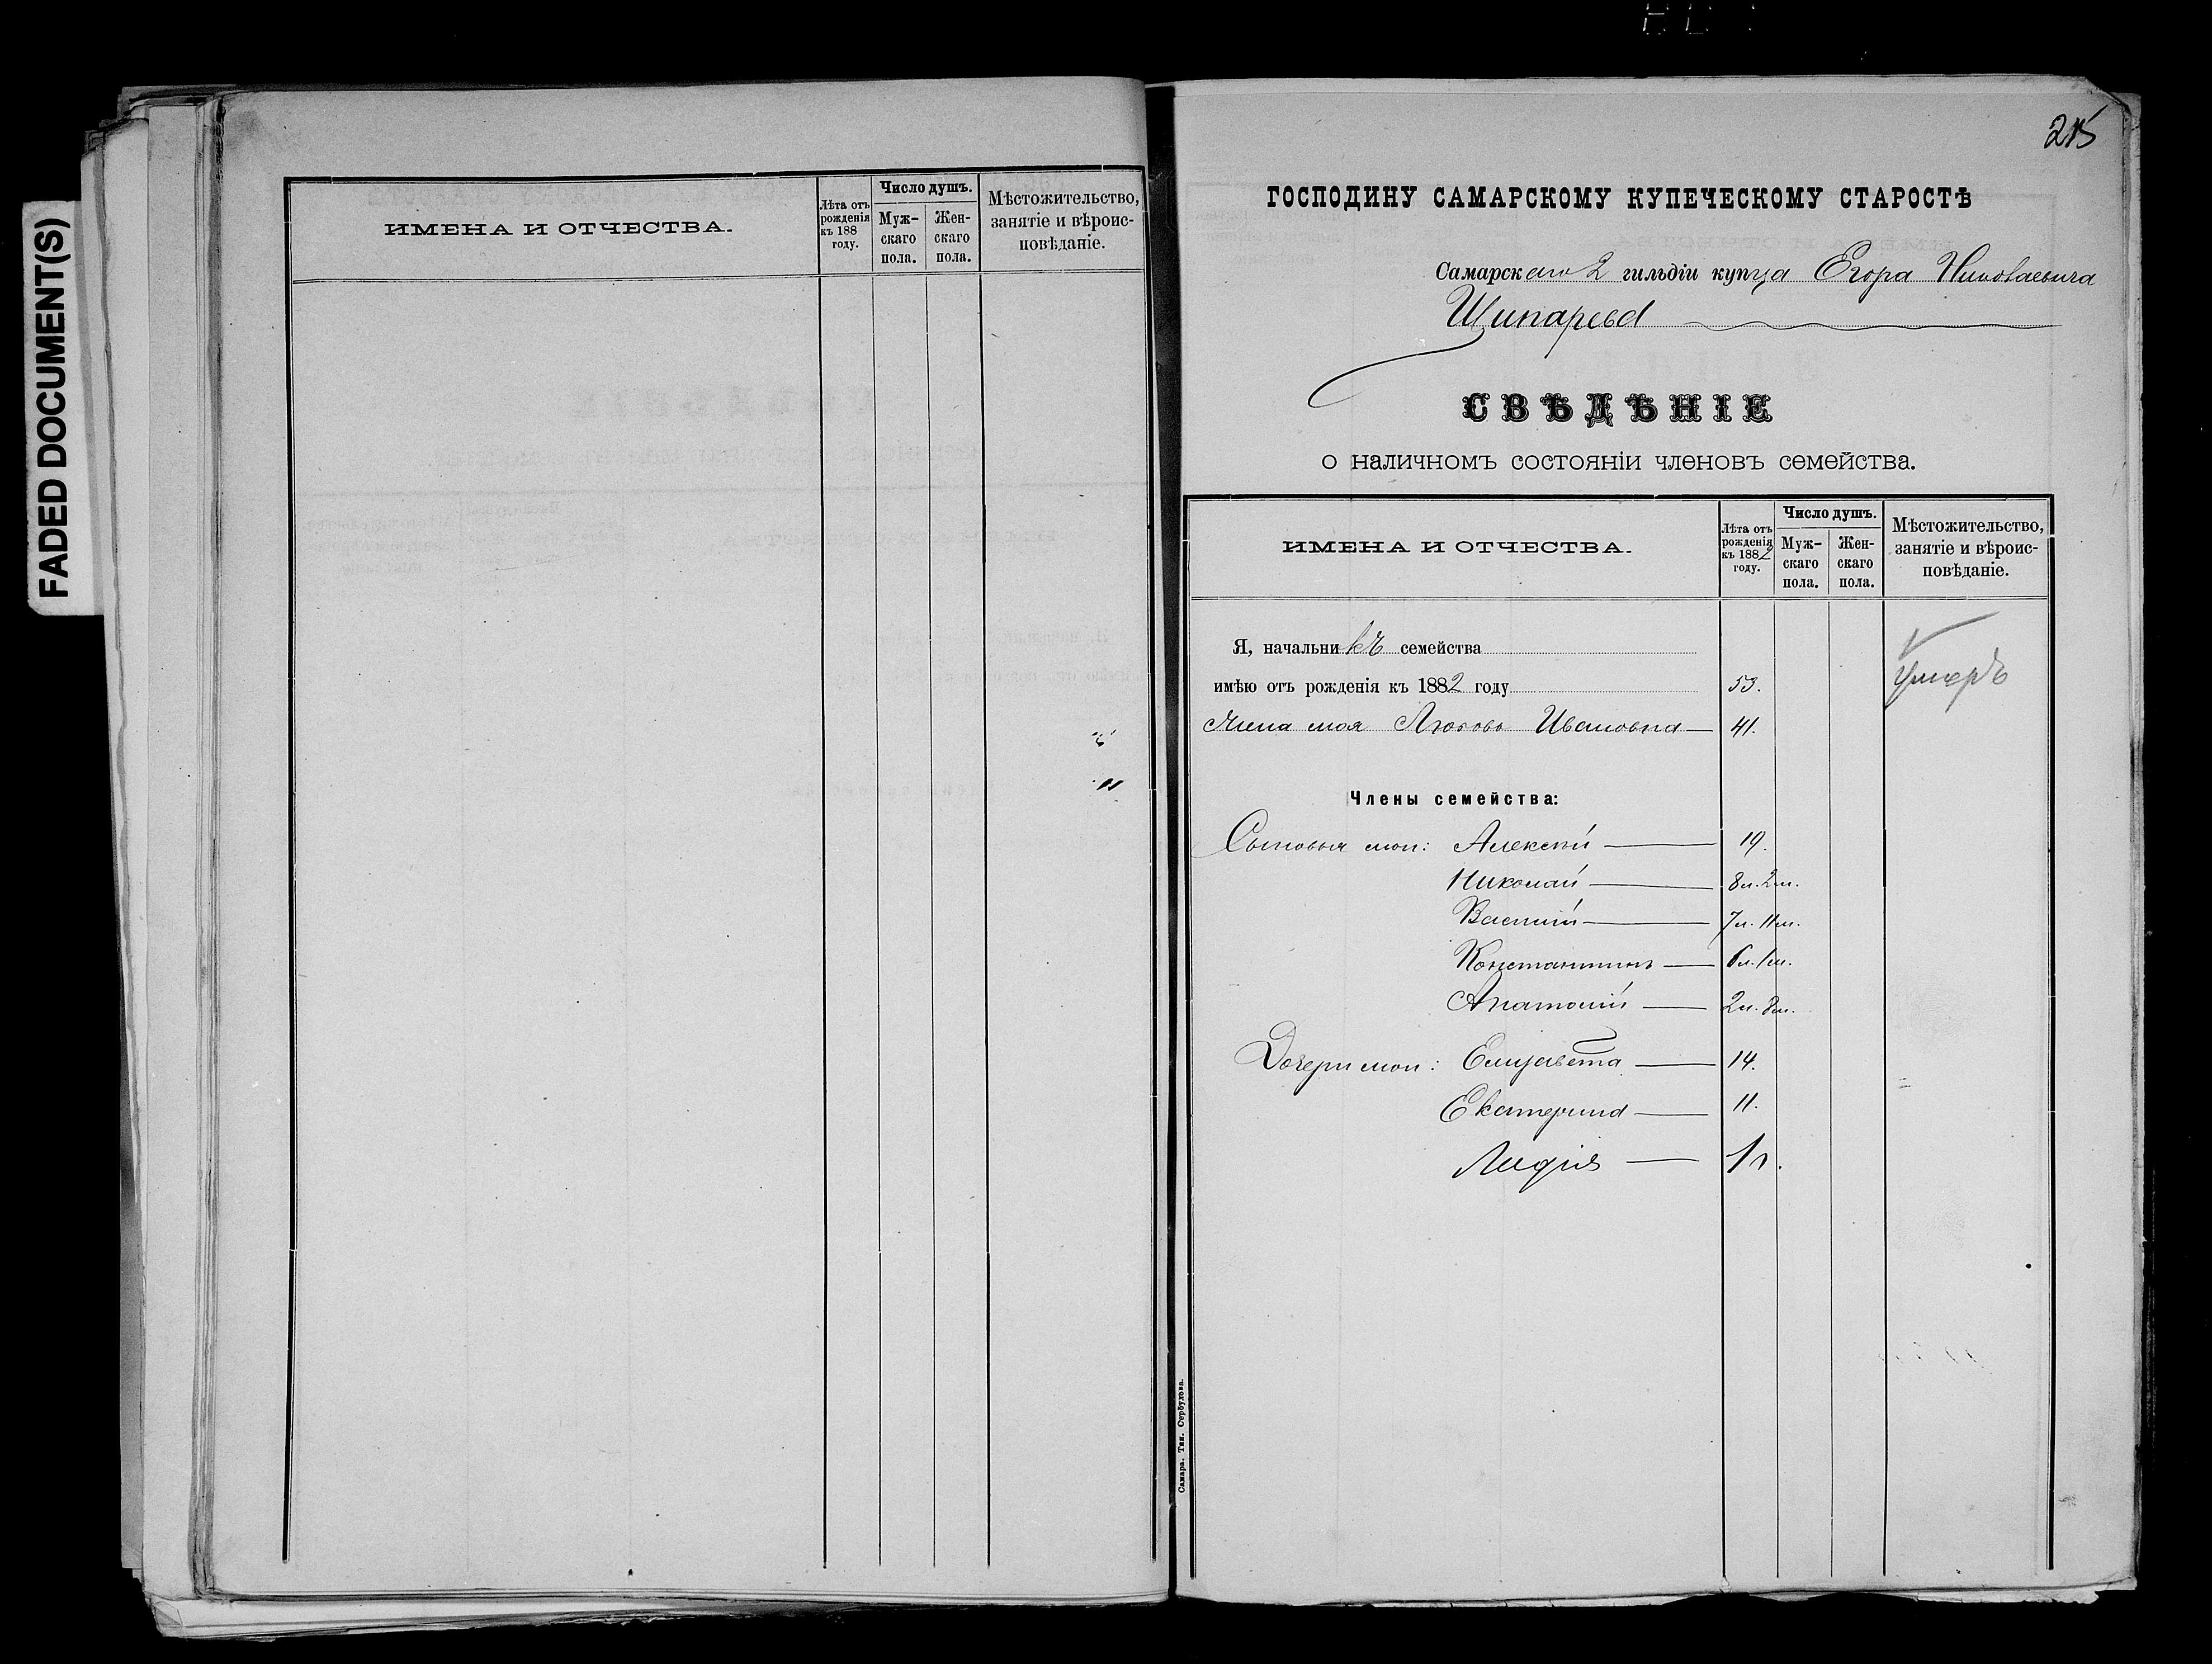 FADED DOCUMENT(S)
ИМЕНА И ОТЧЕСТВА.
Лѣта отъ рожденія къ 188 году.
Число душъ.
Мужскаго пола.
Женскаго пола.
Мѣстожительство, занятіе и вѣроисповѣданіе.
215
ГОСПОДИНУ САМАРСКОМУ КУПЕЧЕСКОМУ СТАРОСТѢ
Самарскаго 2 гильдіи купца Егора Николаевича
Шипарева
СВѢДѢНІЕ
О НАЛИЧНОМЪ СОСТОЯНІИ ЧЛЕНОВЪ СЕМЕЙСТВА.
ИМЕНА И ОТЧЕСТВА.
Лѣта отъ рожденія къ 1882 году.
Число душъ.
Мужскаго пола.
Женскаго пола.
Мѣстожительство, занятіе и вѣроисповѣданіе.
Я, начальникъ семейства
имѣю отъ рожденія къ 1882 году 53. умеръ
Жена моя Любовь Ивановна 41.
Члены семейства:
Сыновья мои: Алексѣй 19.
Николай 8 л. 2 м.
Василій 7 л. 11 м.
Константинъ 6 л. 1 м.
Анатолій 2 л. 8 м.
Дочери мои: Елизавета 14.
Екатерина 11.
Лидія 1 г.
Самара. Тип. Сербулова.